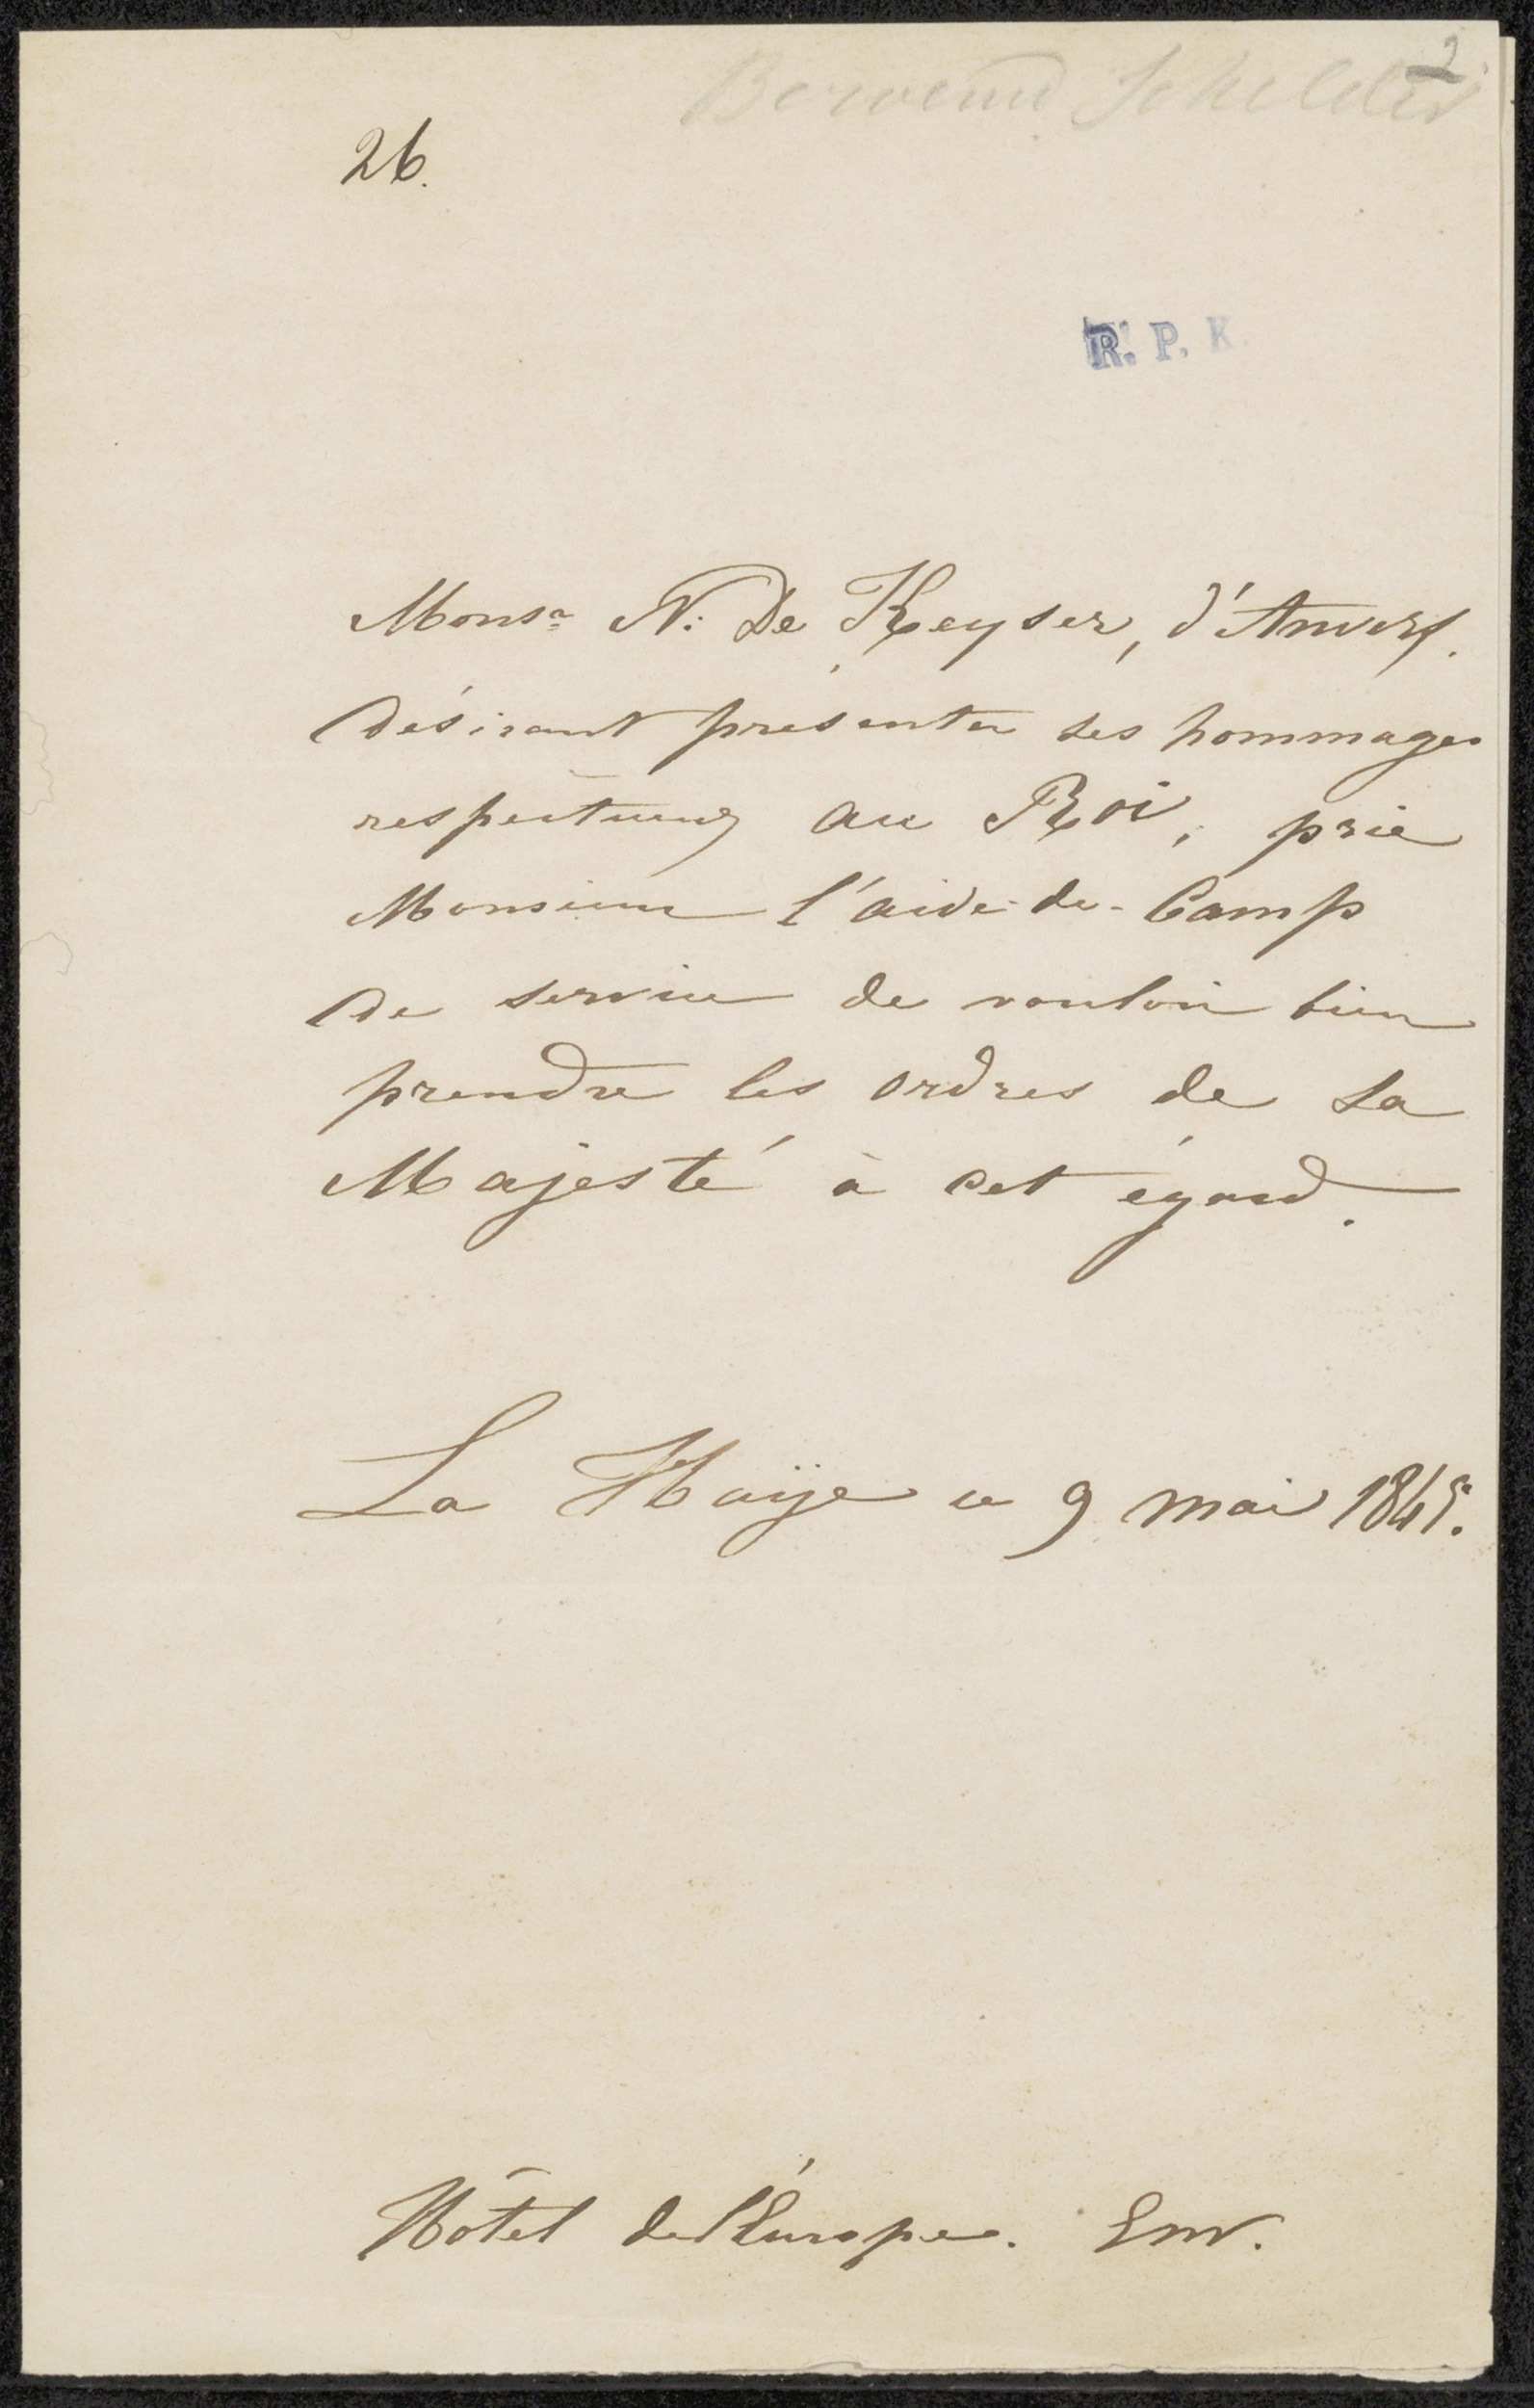 2
Beroemd Schilder
26.
R. P. K.
Monsr N: De Keyser, d'Anvers.
désirant présenter ses hommages
respectueux au Roi, prie
Monsieur l'aide-de-Camp
de service de vouloir bien
prendre les ordres de Sa
Majesté à cet égard.
La Haÿe ce 9 mai 1845.
Hôtel de l'Europe. Env.